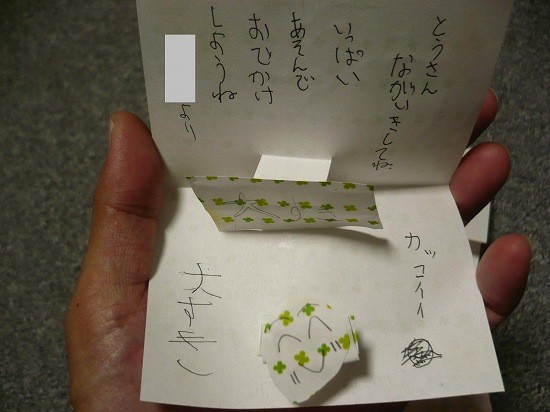 とうさん
ながいきしてね
いっぱい
あそんで
おでかけ
しようね
より
カッコイイ